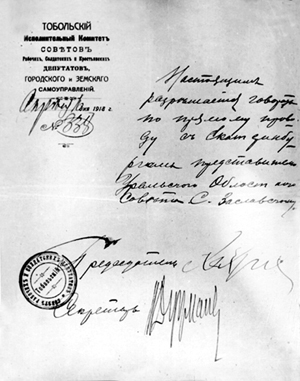 ТОБОЛЬСКІЙ
Исполнительный Комитет
СОВѢТОВЪ
Рабочихъ, Солдатскихъ и Крестьянскихъ
ДЕПУТАТОВЪ,
ГОРОДСКОГО и ЗЕМСКАГО
САМОУПРАВЛЕНІЙ.
1918 г.
№
Настоящимъ
разрѣшается говорить
по прямому прово-
ду съ Екатеринбур-
гомъ представителю
Уральского Областного
Совѣта С. Заславскому.
Предсѣдатель
Секретарь